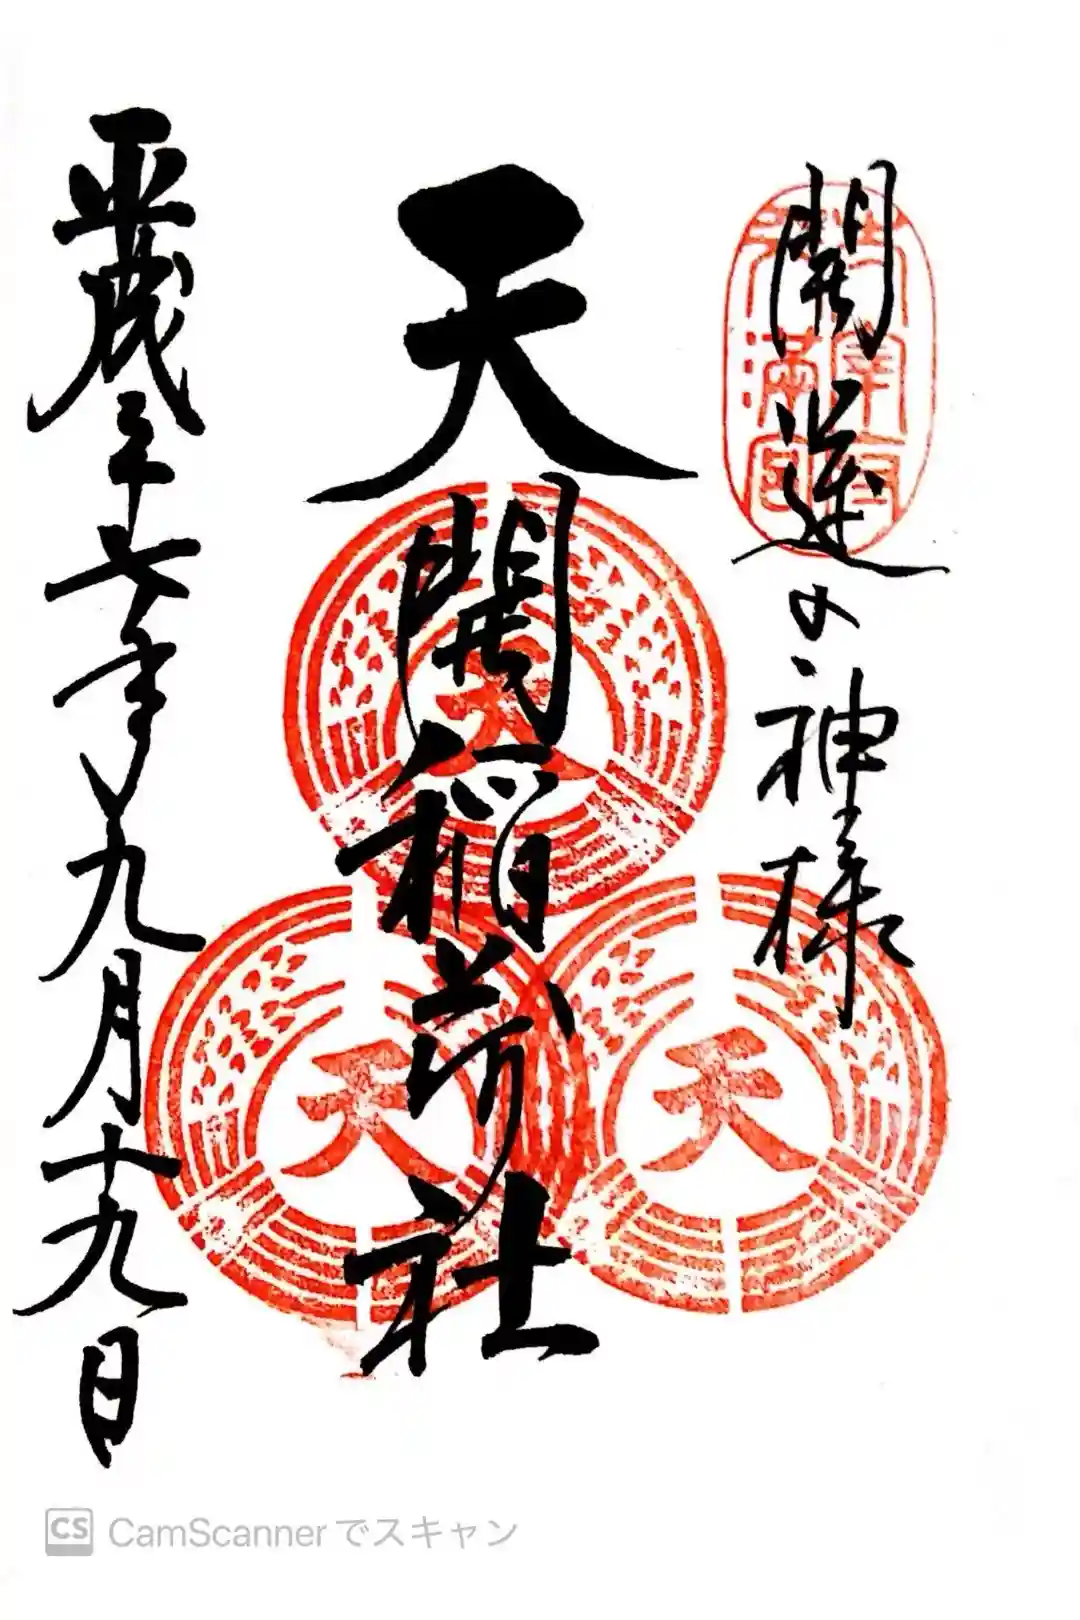 開運の神様
天開稲荷社
平成二十七年九月十九日
CS CamScannerでスキャン